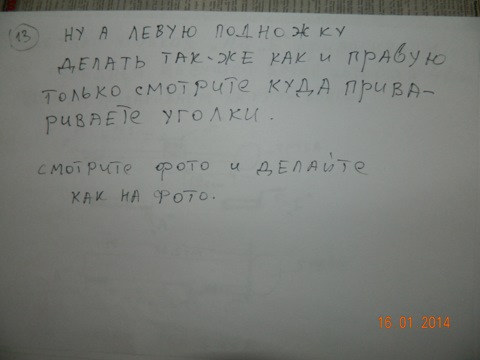 13
НУ А ЛЕВУЮ ПОДНОЖКУ
ДЕЛАТЬ ТАК-ЖЕ КАК И ПРАВУЮ
ТОЛЬКО СМОТРИТЕ КУДА ПРИВА-
РИВАЕТЕ УГОЛКИ.
СМОТРИТЕ ФОТО И ДЕЛАЙТЕ
КАК НА ФОТО.
16 01 2014